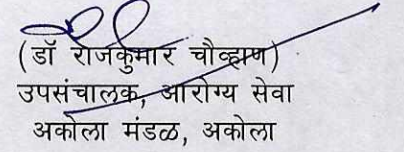 (डॉ राजकुमार चौव्हाण)
उपसंचालक, आरोग्य सेवा
अकोला मंडळ, अकोला